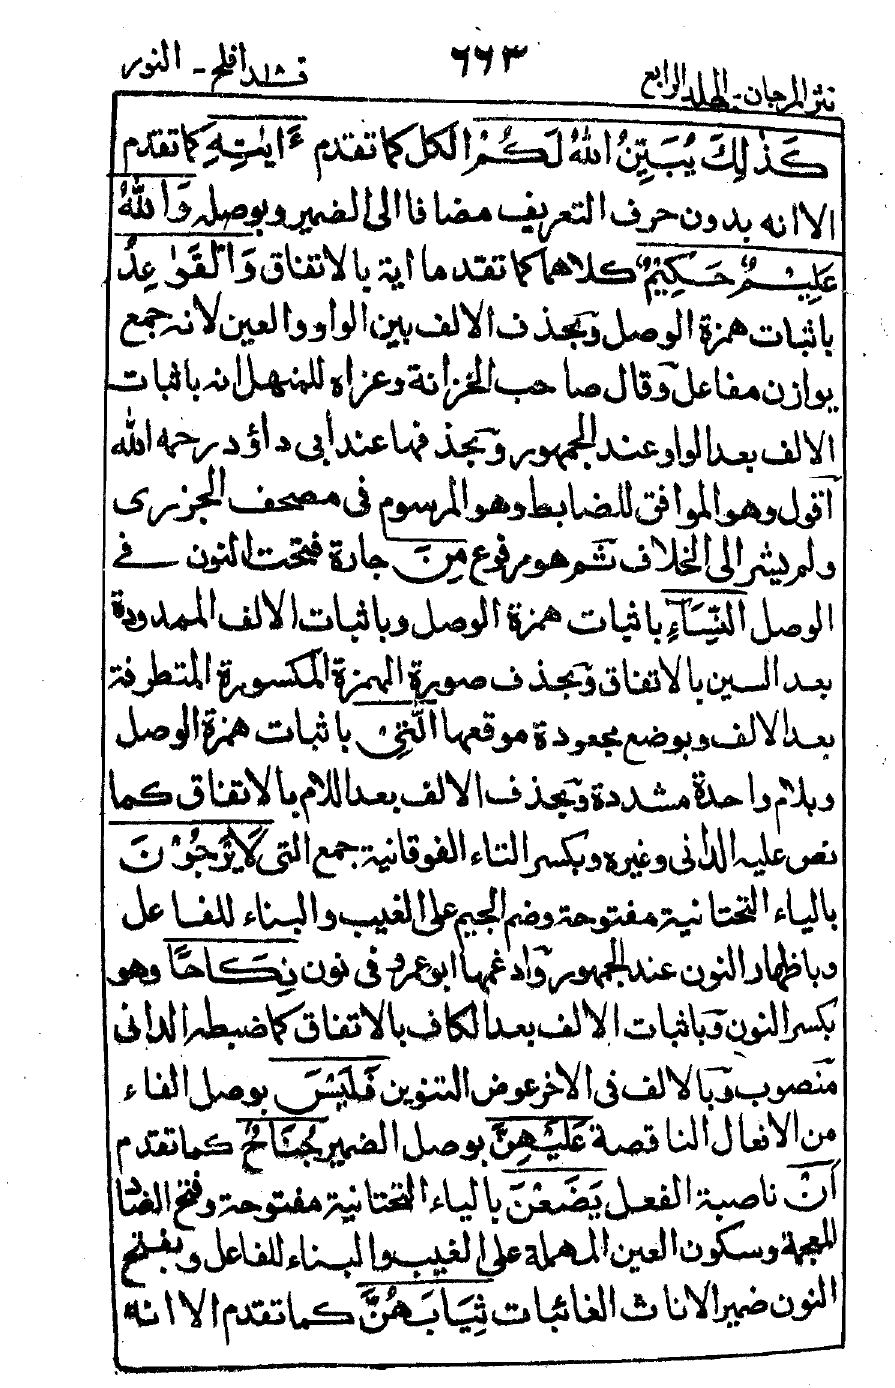 نثر المرجان - الجلد الرابع ٦٦٣ قد افلح - النور
كَذٰلِكَ يُبَيِّنُ اللّٰهُ لَكُمُ الكل كما تقدم ءَايٰتِهٖ كما تقدم
الا انه بدون حرف التعريف مضافا الى الضمير وبوصله وَاللّٰهُ
عَلِيْمٌ حَكِيْمٌ كلاهما كما تقدما اية بالاتفاق وَالْقَوٰعِدُ
باثبات همزة الوصل وبحذف الالف بين الواو والعين لانه جمع
يوازن مفاعل وقال صاحب الخزانة وعزاه للمنهل انه باثبات
الالف بعد الواو عند الجمهور وبحذفها عند أبى داؤد رحمه الله
اقول وهو الموافق للضابط وهو المرسوم فى مصحف الجزرى
ولم يشر الى الخلاف ثم هو مرفوع مِنَ جارة فتحت النون فے
الوصل النِّسَآءِ باثبات همزة الوصل وباثبات الالف الممدودة
بعد السين بالاتفاق وبحذف صورة الهمزة المكسورة المتطرفة
بعد الالف وبوضع مجعودة موقعها الّٰتِىْ باثبات همزة الوصل
وبلام واحدة مشددة وبحذف الالف بعد اللام بالاتفاق كما
نص عليه الدانى وغيره وبكسر التاء الفوقانية جمع التى لَا يَرْجُوْنَ
بالياء التحتانية مفتوحة وضم الجيم على الغيب والبناء للفاعل
وباظهار النون عند الجمهور وادغمها ابو عمرو فى نون نِكَاحًا وهو
بكسر النون وباثبات الالف بعد الكاف بالاتفاق كما ضبطه الدانى
منصوب وبالالف فى الاخر عوض التنوين فَلَيْسَ بوصل الفاء
من الافعال الناقصة عَلَيْهِنَّ بوصل الضمير جُنَاحٌ كما تقدم
اَنْ ناصبة الفعل يَضَعْنَ بالياء التحتانية مفتوحة وفتح الضاد
المعجمة وسكون العين المهملة على الغيب والبناء للفاعل وبفتح
النون ضمير الاناث الغائبات ثِيَابَهُنَّ كما تقدم الا انه